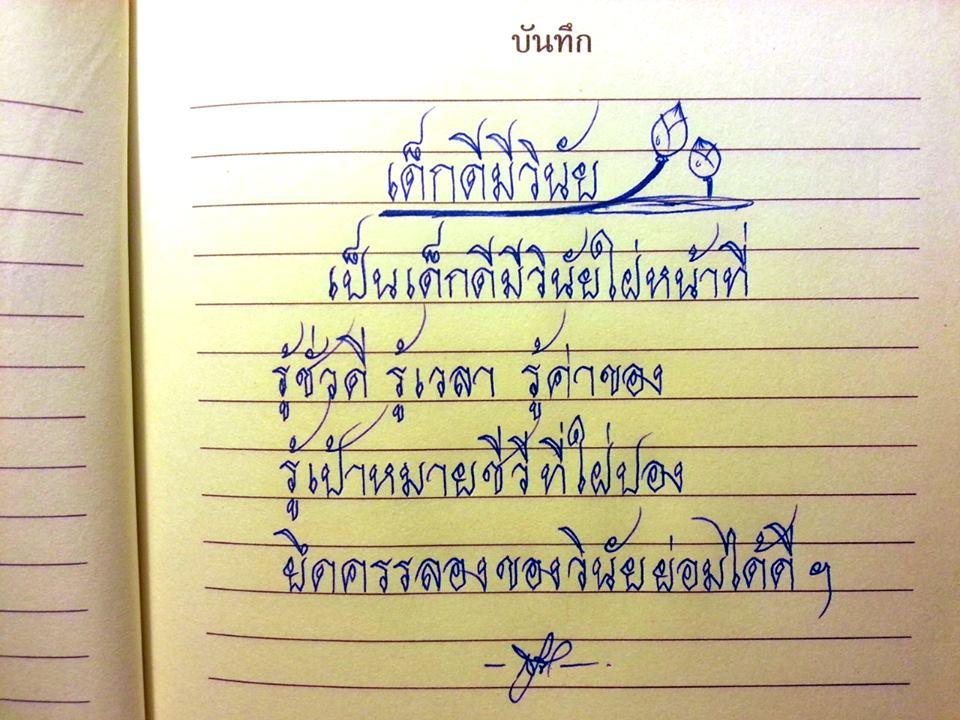 บันทึก
เด็กดีมีวินัย
เป็นเด็กดีมีวินัยใฝ่หน้าที่
รู้ชั่วดี รู้เวลา รู้ค่าของ
รู้เป้าหมายชีวีที่ใฝ่ปอง
ยึดครรลองของวินัยย่อมได้ดี ฯ